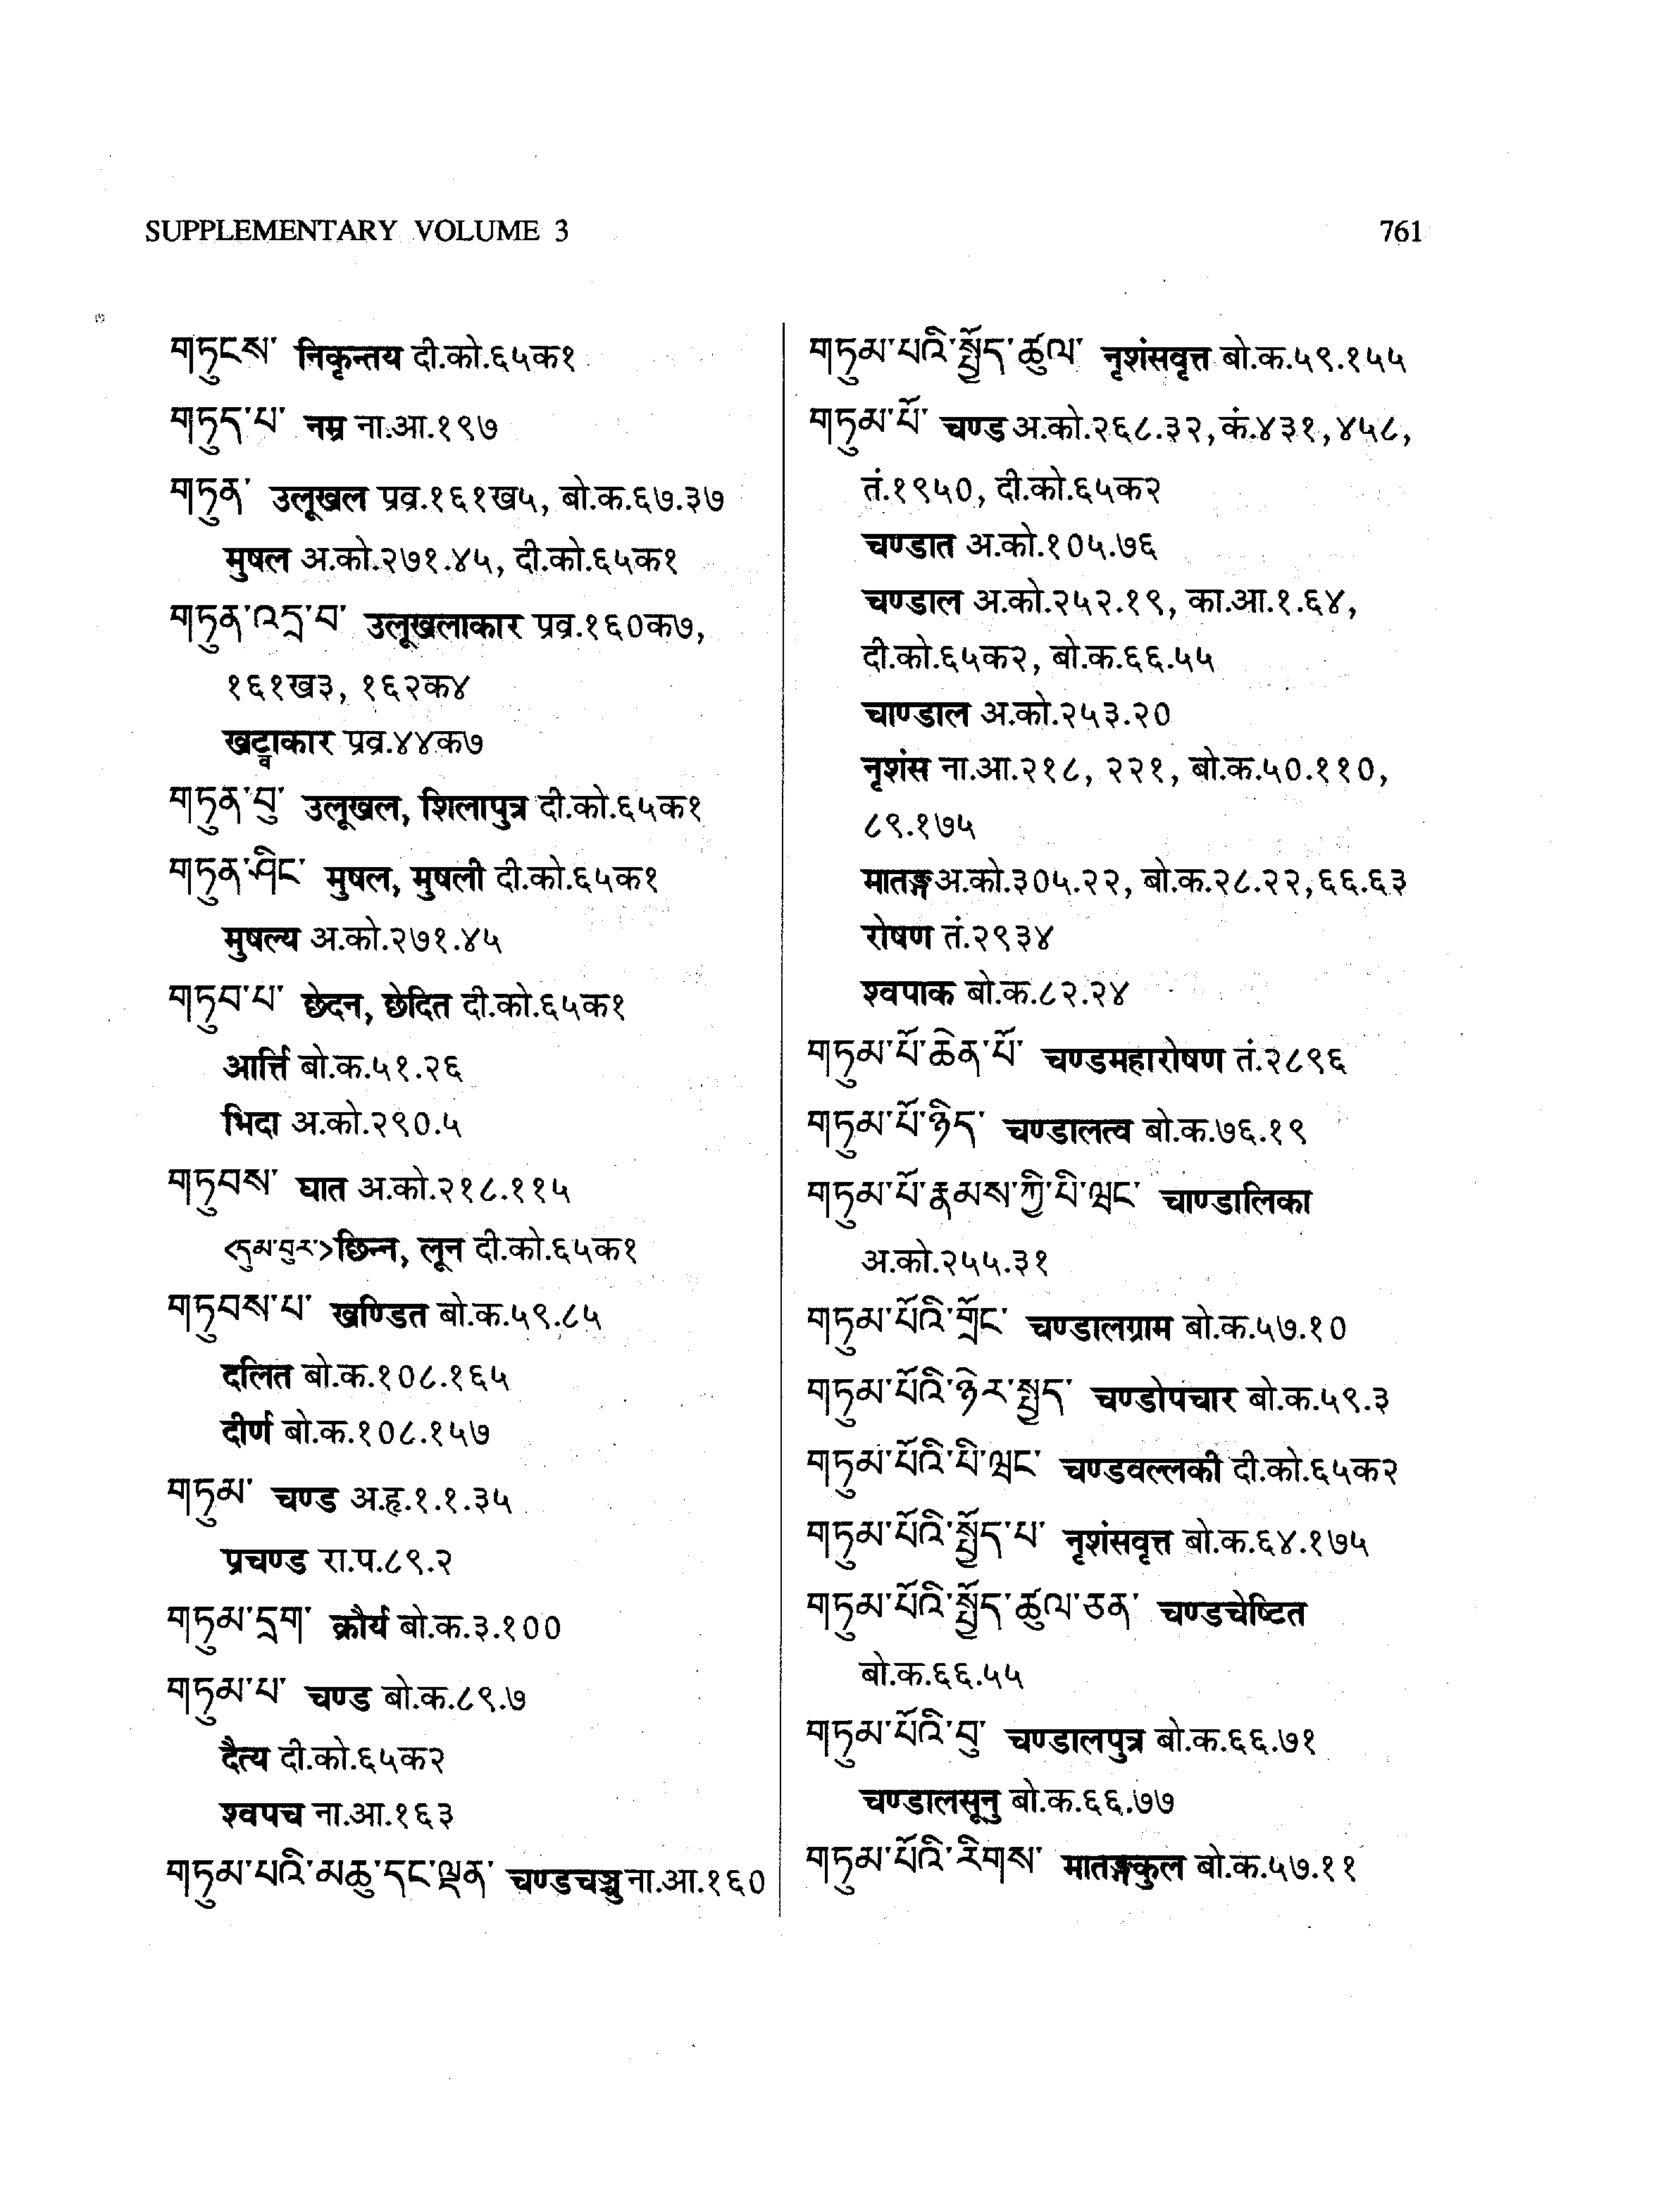 SUPPLEMENTARY VOLUME 3 761
གཏུངས་ निकृन्तय दी.को.६५क१
གཏུད་པ་ नम्र ना.आ.१९७
གཏུན་ उलूखल प्रव्र.१६१ख५, बो.क.६७.३७
मुषल अ.को.२७१.४५, दी.को.६५क१
གཏུན་འདྲ་བ་ उलूखलाकार प्रव्र.१६०क७,
१६१ख३, १६२क४
खट्वाकार प्रव्र.४४क७
གཏུན་བུ་ उलूखल, शिलापुत्र दी.को.६५क१
གཏུན་ཤིང་ मुषल, मुषली दी.को.६५क१
मुषल्य अ.को.२७१.४५
གཏུབ་པ་ छेदन, छेदित दी.को.६५क१
आर्त्ति बो.क.५१.२६
भिदा अ.को.२९०.५
གཏུབས་ घात अ.को.२१८.११५
<དུམ་བུར་>छिन्न, लून दी.को.६५क१
གཏུབས་པ་ खण्डित बो.क.५९.८५
दलित बो.क.१०८.१६५
दीर्ण बो.क.१०८.१५७
གཏུམ་ चण्ड अ.हृ.१.१.३५
प्रचण्ड रा.प.८९.२
གཏུམ་དྲག་ क्रौर्य बो.क.३.१००
གཏུམ་པ་ चण्ड बो.क.८९.७
दैत्य दी.को.६५क२
श्वपच ना.आ.१६३
གཏུམ་པའི་མཆུ་དང་ལྡན་ चण्डचञ्चु ना.आ.१६०
གཏུམ་པའི་སྤྱོད་ཚུལ་ नृशंसवृत्त बो.क.५९.१५५
གཏུམ་པོ་ चण्ड अ.को.२६८.३२, कं.४३१, ४५८,
तं.१९५०, दी.को.६५क२
चण्डात अ.को.१०५.७६
चण्डाल अ.को.२५२.१९, का.आ.१.६४,
दी.को.६५क२, बो.क.६६.५५
चाण्डाल अ.को.२५३.२०
नृशंस ना.आ.२१८, २२१, बो.क.५०.११०,
८९.१७५
मातङ्ग अ.को.३०५.२२, बो.क.२८.२२, ६६.६३
रोषण तं.२९३४
श्वपाक बो.क.८२.२४
གཏུམ་པོ་ཆེན་པོ་ चण्डमहारोषण तं.२८९६
གཏུམ་པོ་ཉིད་ चण्डालत्व बो.क.७६.१९
གཏུམ་པོ་རྣམས་ཀྱི་པི་ཝང་ चाण्डालिका
अ.को.२५५.३१
གཏུམ་པོའི་གྲོང་ चण्डालग्राम बो.क.५७.१०
གཏུམ་པོའི་ཉེར་སྤྱད་ चण्डोपचार बो.क.५९.३
གཏུམ་པོའི་པི་ཝང་ चण्डवल्लकी दी.को.६५क२
གཏུམ་པོའི་སྤྱོད་པ་ नृशंसवृत्त बो.क.६४.१७५
གཏུམ་པོའི་སྤྱོད་ཚུལ་ཅན་ चण्डचेष्टित
बो.क.६६.५५
གཏུམ་པོའི་བུ་ चण्डालपुत्र बो.क.६६.७१
चण्डालसूनु बो.क.६६.७७
གཏུམ་པོའི་རིགས་ मातङ्गकुल बो.क.५७.११